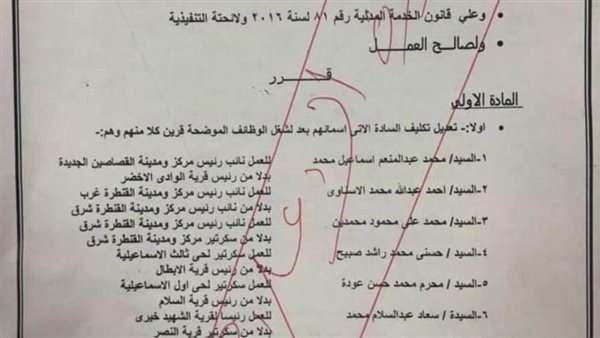 وعلي قانون الخدمة المدنية رقم ٨١ لسنة ٢٠١٦ ولائحتة التنفيذية
ولصالح العمــل
قــــرر
المادة الاولي
اولا:- تعديل تكليف السادة الاتى اسمائهم بعد لشغل الوظائف الموضحة قرين كلا منهم وهم:-
١-السيد/ محمد عبدالمنعم اسماعيل محمد
للعمل نائب رئيس مركز ومدينة القصاصين الجديدة
بدلا من رئيس قرية الوادى الاخضر
٢-السيد/ احمد عبدالله محمد الاسناوى
للعمل نائب رئيس مركز ومدينة القنطرة غرب
بدلا من نائب رئيس مركز ومدينة القنطرة شرق
٣-السيد/ محمد على محمود محمدين
للعمل نائب رئيس مركز ومدينة القنطرة شرق
بدلا من سكرتير مركز ومدينة القنطرة شرق
٤-السيد / حسنى محمد راشد صبيح
للعمل سكرتير لحى ثالث الاسماعيلية
بدلا من رئيس قرية الابطال
٥-السيد / محرم محمد حسن عودة
للعمل سكرتير لحى اول الاسماعيلية
بدلا من رئيس قرية السلام
٦-السيدة / سعاد عبدالسلام محمد
للعمل رئيسا لقرية الشهيد خيرى
بدلا من سكرتير قرية النصر